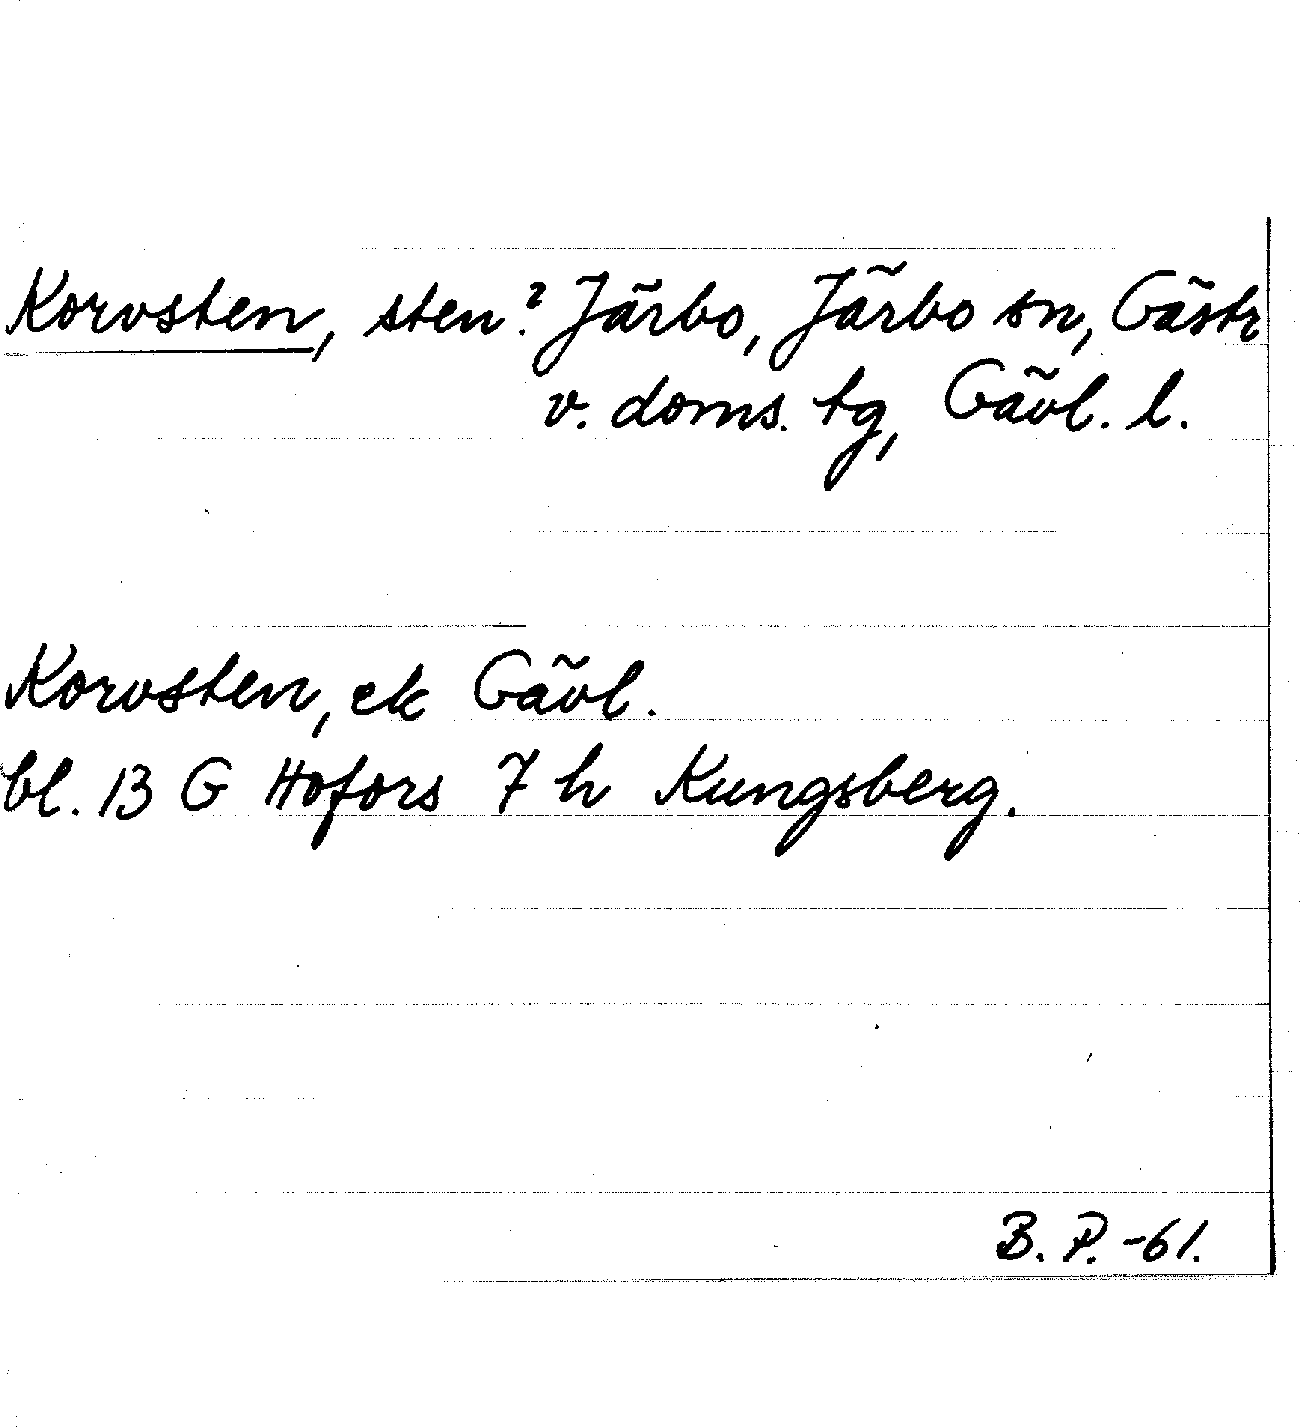 Korvsten, sten? Järbo, Järbo sn, Gästr
v. doms. tg, Gävl. l.
Korvsten, ek Gävl.
bl. 13 G Hofors 7 h Kungsberg.
B. P. -61.